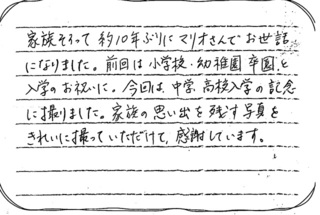 家族そろって約10年ぶりにマリオさんでお世話
になりました。前回は小学校・幼稚園 卒園と
入学のお祝いに。今回は、中学、高校入学の記念
に撮りました。家族の思い出を残す写真を
きれいに撮っていただけて、感謝しています。